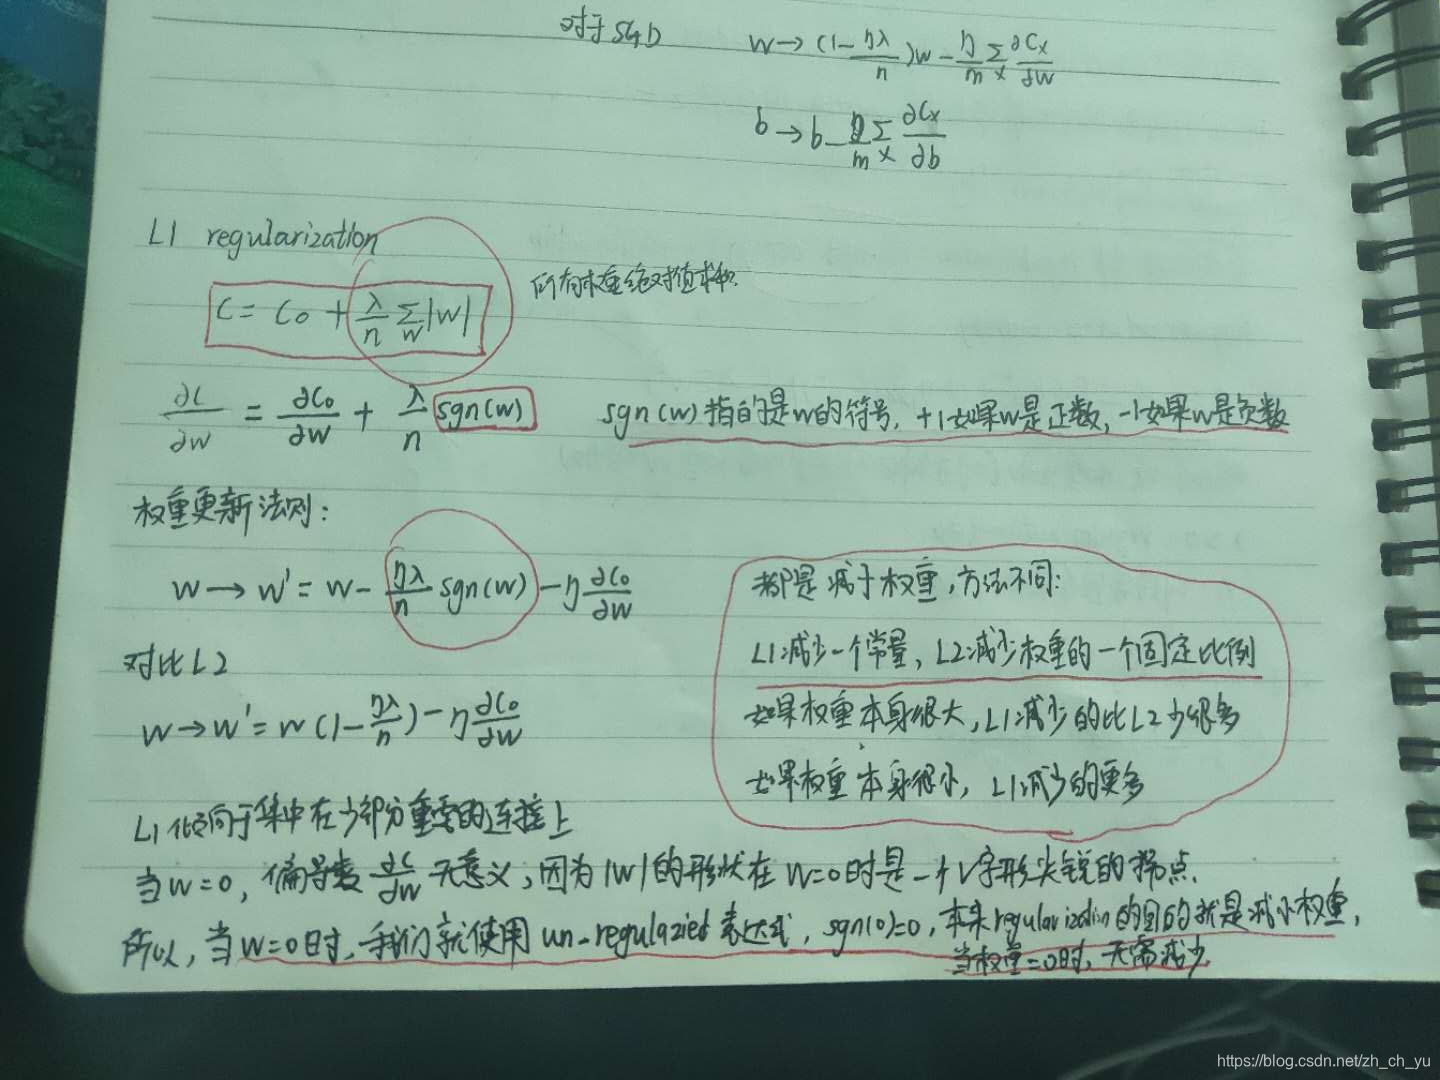 对于SGD  w → (1 - ηλ/n)w - η/m Σx ∂Cx/∂w
b → b - η/m Σx ∂Cx/∂b
L1 regularization
C = C₀ + λ/n Σw |w|  所有权重绝对值求和.
∂C/∂w = ∂C₀/∂w + λ/n sgn(w)  sgn(w)指的是w的符号, +1如果w是正数, -1如果w是负数
权重更新法则:
w → w' = w - ηλ/n sgn(w) - η ∂C₀/∂w
对比L2
w → w' = w(1 - ηλ/n) - η ∂C₀/∂w
都是减小权重, 方法不同:
L1减少一个常量, L2减少权重的一个固定比例
如果权重本身很大, L1减少的比L2少很多
如果权重本身很小, L1减少的更多
L1倾向于集中在少部分重要的连接上
当w=0, 偏导数 ∂C/∂w 无意义, 因为|w|的形状在w=0时是一个V字形尖锐的拐点.
所以, 当w=0时, 我们就使用un-regulazied表达式, sgn(0)=0, 本来regularization的目的就是减小权重,
当权重=0时, 无需减少
https://blog.csdn.net/zh_ch_yu